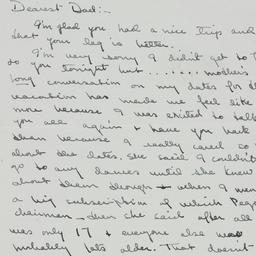 Dearest Dad:-
I'm glad you had a nice trip and
that your leg is better..
I'm very sorry I didn't get to
to you tonight but ........ mother's
long conversation on my dates for
vacation has made me feel like
more because I was excited to talk
you all again & have you back
because I really cared so
about the dates. She said I couldn't
go to any dances until she knew
about them though - when I
a big subscription of which Page
chairman - then she said after all
was only 17 & everyone else was
probably lots older. That doesn't